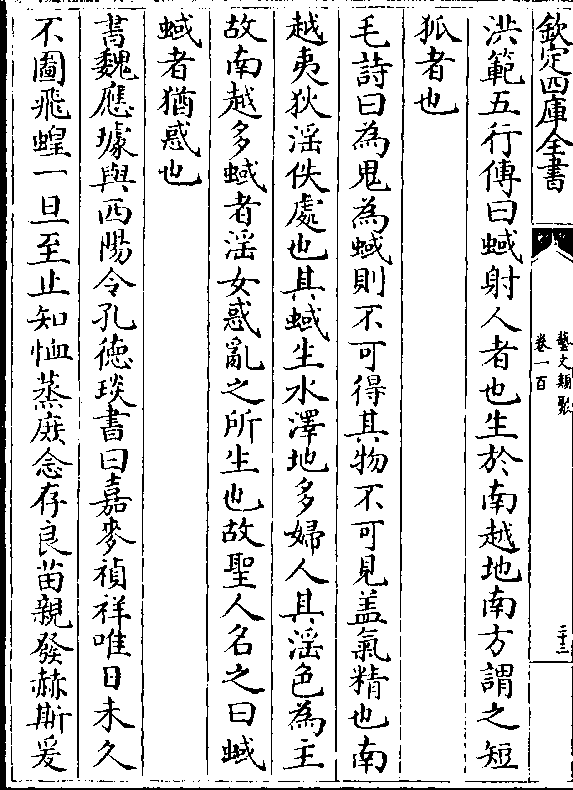 欽定四庫全書
藝文類聚
卷一百
二十三
洪範五行傳曰蜮射人者也生於南越地南方謂之短
狐者也
毛詩曰為鬼為蜮則不可得其物不可見盖氣精也南
越夷狄淫佚處也其蜮生水澤地多婦人其淫色為主
故南越多蜮者淫女惑亂之所生也故聖人名之曰蜮
蜮者猶惑也
書魏應璩與西陽令孔徳琰書曰嘉麥禎祥唯日未久
不圖飛蝗一旦至止知恤蒸庶念存良苗親發赫斯爰